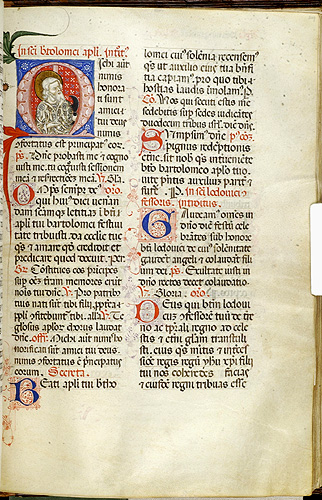 In sci Bartolomei apli. Introit.
ichi aut
nimis
honora
ti sunt
amici
tui deus
nimis
cōfortatus est principat' eor.
ps. Dne probasti me et cogno
uisti me. tu cognouisti sessionem
meā et resurrectiōez meā. Gla.
Omps sempiterne ds. oro.
qui huius diei ueneran
dam scāmqz letitiaz i bti
apli tui bartolomei festiui
tate tribuisti. da ecclie tue
qs et amare qd credidit et
predicare quod docuit. per.
Gr. Cōstitues eos principes
sup oēm terram memores erūt
nois tui dne. V. Pro patribus
tuis nati sunt tibi filij. ppterea
ppli cōfitebunt tibi. alla. V. Te
gl'osus aplor chorus laudat
dne. off. Michi aut nimis ho
norificati sūt amici tui deus
nimis cōfortatus est principatus
eorum. Secreta.
Beati apli tui btho
lomei cui' solēnia recensem'
qs ut auxilio eius tua bnfi
tia capiam'. pro quo tibi
hostias laudis imolam'. P.
Co. Uos qui secuti estis me
sedebitis sup sedes iudicātes
duodecim tribus isrl'. dic dns.
Sumpsim' dne pco.
pignus redēptionis
etne. sit nob qs interueniēte
bto bartolomeo aplo tuo
uite pntis auxiliuz pariter et
future. P. In sci ledouici
cōfessoris. introitus.
Gaudeamus omēs in
dno diē festū cele
brātes sub honore
bti ledouici de cui' solēnitate
gaudet angeli et colaudāt fili
um dei. ps. Exultate iusti in
dno rectos decet colaudatio.
V. Gloria. oro.
Deus qui btm ledoui
cum cōfessorē tuū de tre
no ac tpāli regno ad cele
stis et etni glām transtuli
sti. eius qs mitis et īterces
sioē regis regū yhu xpi filij
tui nos coheredes facias
et eiusdē regni tribuas esse